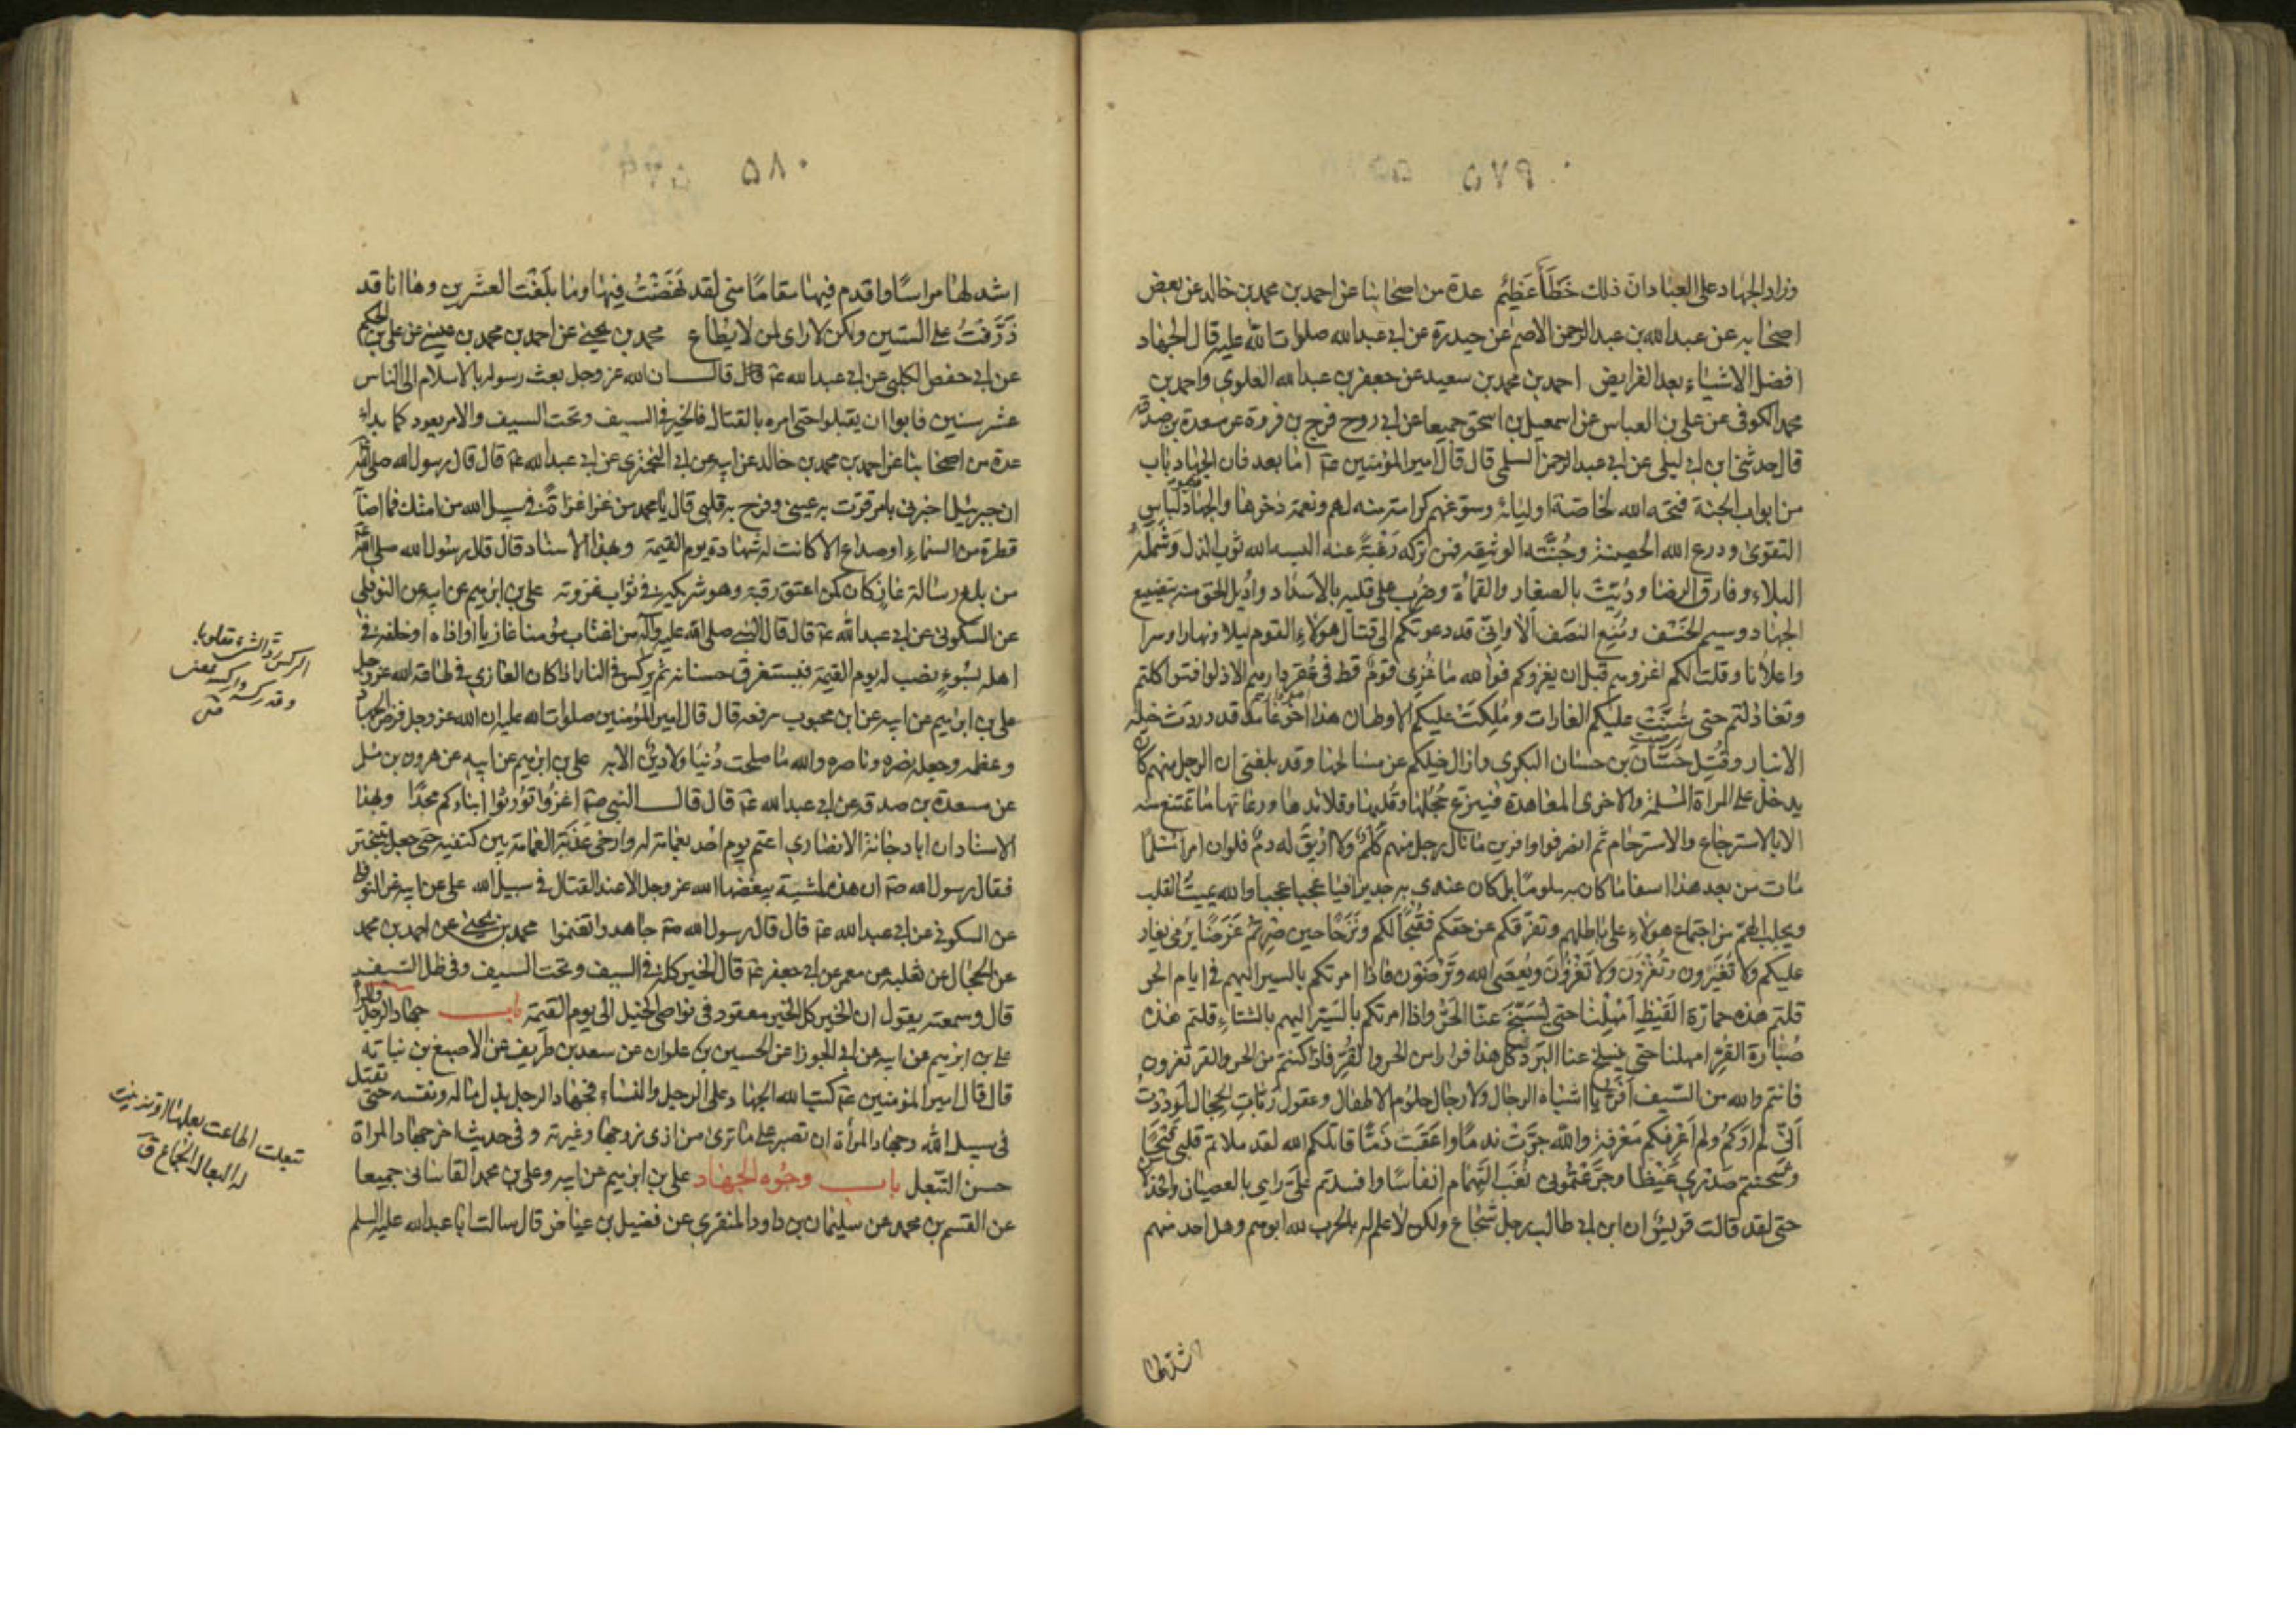 ٥٧٩
وزاد الجهاد على العباد ان ذلك خَطَأٌ عَظِيم عدة من اصحابنا عن احمد بن محمد بن خالد عن بعض
اصحابه عن عبد الله بن عبد الرحمن الاصم عن حيدرة عن ابي عبد الله صلوات الله عليه قال الجهاد
افضل الاشياء بعد الفرايض احمد بن محمد بن سعيد عن جعفر بن عبد الله العلوي واحمد بن
محمد الكوفي عن علي بن العباس عن اسمعيل بن اسحق جميعا عن ابي روح فرج بن فروة عن مسعدة بن صدقة
قال حدثني ابن ابي ليلى عن ابي عبد الرحمن السلمي قال قال امير المؤمنين ع اما بعد فان الجهاد باب
من ابواب الجنة فتحه الله لخاصة اوليائه وسوغهم كرامة منه لهم ونعمة ذخرها والجهاد هو لباس
التقوى ودرع الله الحصينة وجُنَّته الوثيقه فمن تركه رَغْبَةً عنه البسه الله ثوب الذل وشَمِلَه
البلاء وفارق الرضا ودُيِّثَ بالصغار والقماءة وضُرِب على قلبه بالاسداد واُديل الحق منه بتضييع
الجهاد وسيم الخَسْف ومُنِع النصَف ألا وانّي قد دعوتكم الى قتال هولاء القوم ليلا ونهارا وسرا
واعلانا وقلت لكم اغزوهم قبل ان يغزوكم فوالله ما غُزِي قومٌ قط في عُقر دارهم الا ذلوا فتواكلتم
وتخاذلتم حتى شُنَّتْ عليكم الغارات ومُلِكَتْ عليكم الاوطان هذا اخو غامد قد وردت خيله
الانبار وقُتِل حَسَّان بن حسان البكري وازال خيلكم عن مسالحها وقد بلغني ان الرجل منهم كان
يدخل على المراة المسلمة والاخرى المعاهدة فينزع حجلها وقُلبها وقلائدها ورعاثها ما تمتنع منه
الا بالاسترجاع والاسترحام ثم انصرفوا وافرين ما نال رجل منهم كَلْمٌ ولا اُرِيقَ له دم فلو ان امرأ مسلما
مات من بعد هذا اسفا ما كان به ملوما بل كان عندي به جديرا فيا عجبا عجبا والله يميث القلب
ويجلب الهمّ من اجتماع هولاء على باطلهم وتفرّقكم عن حقكم فقُبحًا لكم وتَرَحًا حين صِرتم غَرَضًا يُرمى يغار
عليكم ولا تُغيرون وتُغْزَوْن ولا تَغْزُوْنَ ويُعصَى الله وتَرْضَوْن فاذا امرتكم بالسير اليهم في ايام الحر
قلتم هذه حمارّة القَيْظ اَمْهِلْنا حتى يُسَبَّخ عنّا الحَرّ واذا امرتكم بالسَيْر اليهم بالشتاء قلتم هذه
صُبارّة القُرّ امهلنا حتى ينسلخ عنا البرد كل هذا فرارا من الحر والقُرّ فاذا كنتم من الحر والقر تفرون
فانتم والله من السّيف اَفرّ يا اشباه الرجال ولا رجال حلوُم الاطفال وعقول ربّاتِ الحجال لَودِدْتُ
اَنّي لم اَرَكُم ولم اَعْرِفكم مَعْرِفةً والله جرّتْ ندمًا واعقبَت ذمًّا قاتلكم الله لقد ملاتم قلبي قَيْحًا
وشحنتم صَدْري غَيْظا وجَرّعْتُموني نُغَبَ التَهْمام انفاسًا وافسدتم عَلَيّ رايي بالعصيان والخذلان
حتى لقد قالت قريش ان ابن ابي طالب رجل شجاع ولكن لا علم له بالحرب لله ابوهم وهل احد منهم
اشد لها
٥٨٠
اشد لها مراسًا واقدم فيها مقامًا مني لقد نَهَضْتُ فيها وما بلَغْت العشرين وها انا قد
ذَرَّفتُ على الستين ولكن لا راى لمن لا يُطاع محمد بن يحيى عن احمد بن محمد بن عيسى عن علي بن الحكم
عن ابي حفص الكلبي عن ابي عبد الله ع قال قال ان الله عز وجل بعث رسوله بالاسلام الى الناس
عشر سنين فابوا ان يقبلوا حتى امره بالقتال فالخير في السيف وتحت السيف والامر يعود كما بداء
عدة من اصحابنا عن احمد بن محمد بن خالد عن ابيه عن ابي البختري عن ابي عبد الله ع قال قال رسول الله صلى الله
ان جبرئيل اخبرني بامر قرّت به عيني وفرح به قلبي قال يا محمد من غزا غزاةً في سبيل الله من امتك فما اصابه
قطرة من السماء او صداع الا كانت له شهادة يوم القيمة وبهذا الاسناد قال قال رسول الله صلى الله
من بلغ رسالة غازٍ كان كمن اعتق رقبة وهو شريكه في ثواب غزوته علي بن ابراهيم عن ابيه عن النوفلي
عن السكوني عن ابي عبد الله ع قال قال النبي صلى الله عليه وآله من اغتاب مؤمنا غازيا او اذاه او خلفه في
اهله بسُوءٍ نصب له يوم القيمة فيستغرق حسناته ثم يركس في النار اذا كان الغازي في طاعة الله عز وجل
علي بن ابراهيم عن ابيه عن ابن محبوب رفعه قال قال امير المؤمنين صلوات الله عليه ان الله عز وجل فرض الجهاد
وعظمه وجعله نصره وناصره والله ما صلحت دُنيا ولا دينٌ الا به علي بن ابراهيم عن ابيه عن هرون بن مسلم
عن مسعدة بن صدقه عن ابي عبد الله ع قال قال النبي ص اغزُوا تُورِثُوا ابناءكم مجدًا وبهذا
الاسناد ان ابا دجانة الانصاري اعتم يوم احُد بعمامة له وارخى عَذَبَة العمامة بين كتفيه حتى جعل يتبختر
فقال رسول الله ص ان هذه لمشية يبغضها الله عز وجل الا عند القتال في سبيل الله علي عن ابيه عن النوفلي
عن السكوني عن ابي عبد الله ع قال قال رسول الله ص جاهدوا تغنموا محمد بن يحيى عن احمد بن محمد
عن الحجال عن ثعلبه عن معمر عن ابي جعفر ع قال الخير كله في السيف وتحت السيف وفي ظل السّيف
قال وسمعته يقول ان الخير كل الخير معقود في نواصي الخيل الى يوم القيمة باب جهاد الرجل والمراة
علي بن ابراهيم عن ابيه عن ابي الجوزا عن الحسين بن علوان عن سعد بن طريف عن الاصبغ بن نباته
قال قال امير المؤمنين ع كتب الله الجهاد على الرجل والنساء فجهاد الرجل بذل ماله ونفسه حتى تقتل
في سبيل الله وجهاد المرأة ان تصبر على ما ترى من اذى زوجها وغيرته وفي حديث اخر جهاد المراة
حسن التبعل باب وجُوه الجهاد علي بن ابراهيم عن ابيه وعلي بن محمد القاساني جميعا
عن القسم بن محمد عن سليمان بن داود المنقري عن فضيل بن عياض قال سالت ابا عبد الله عليه السلم
الركس ردّ الشيء مقلوبا
وقد ركسه واركسه بمعنى
تبعلت اطاعت بعلها او تزينت
له البعال الجماع ق